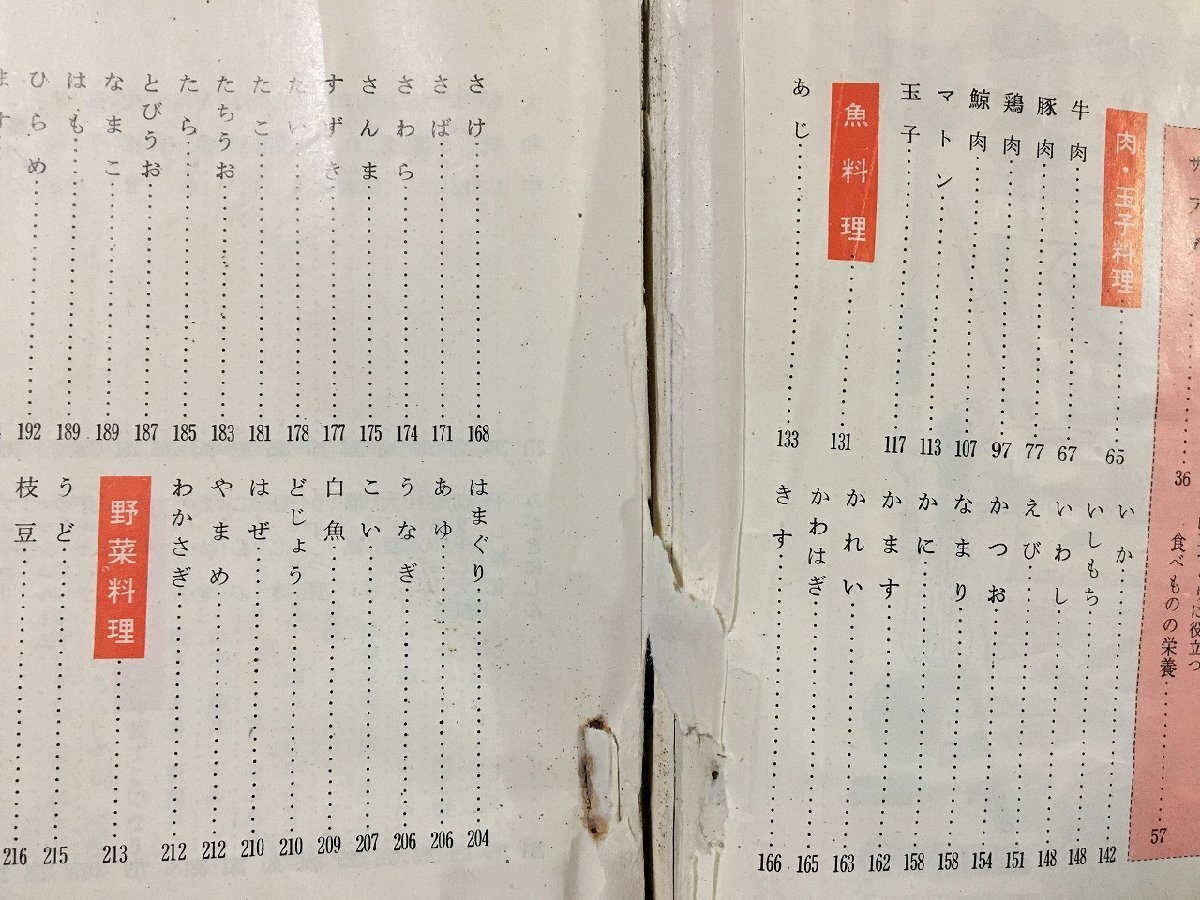 36
食べものの栄養 57
肉・玉子料理 65
牛肉 67
豚肉 77
鶏肉 97
鯨肉 107
マトン 113
玉子 117
魚料理 131
あじ 133
いか 142
いしもち 148
いわし 148
えび 151
かつお 154
なまり 158
かに 158
かます 162
かれい 163
かわはぎ 165
きす 166
さけ 168
さば 171
さわら 174
さんま 175
すずき 177
たい 178
たこ 181
たちうお 183
たら 185
とびうお 187
なまこ 189
はも 189
ひらめ 192
はまぐり 204
あゆ 206
うなぎ 206
こい 207
白魚 209
どじょう 210
はぜ 210
やまめ 212
わかさぎ 212
野菜料理 213
うど 215
枝豆 216